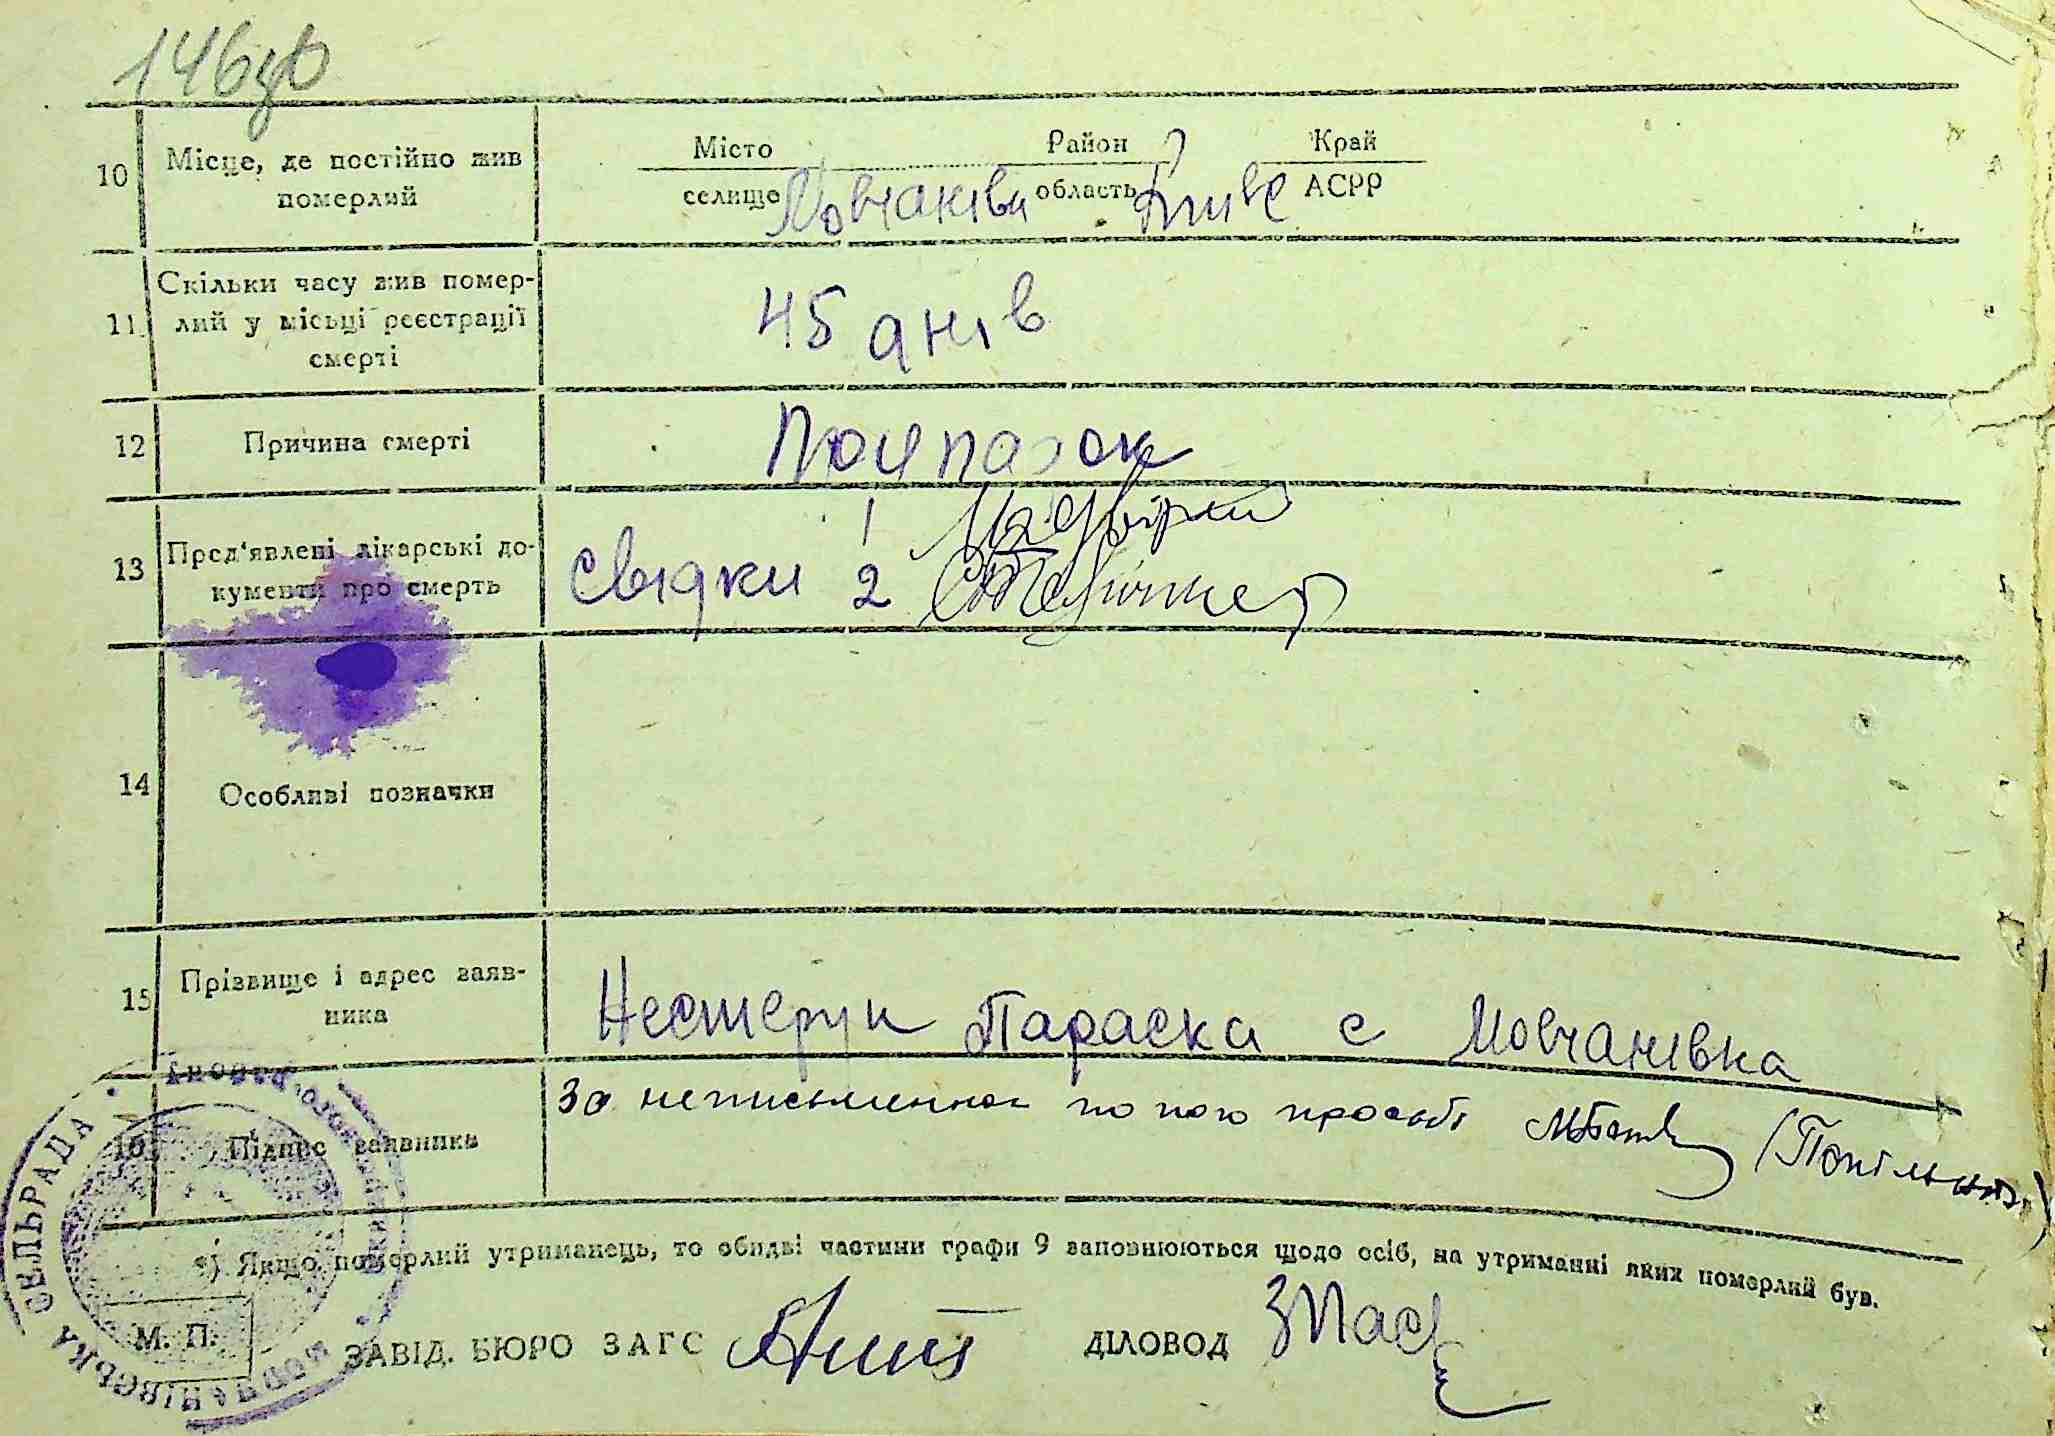 146зв
10 Місце, де постійно жив Місто Район Край
померлий селище Мовчанівк область Київс АСРР
Скільки часу жив помер-
11 лий у місці реєстрації 45 днів
смерті
12 Причина смерті
13 Пред'явлені лікарські до- 1
кументи про смерть свідки 2
14 Особливі позначки
15 Прізвище і адрес заяв-
ника Нестерук Параска с Мовчанівка
16 Підпис заявника За неписьменного по його просьбі
*) Якщо померлий утриманець, то обидві частини графи 9 заповнюються щодо осіб, на утриманні яких померлий був.
М. П. ЗАВІД. БЮРО ЗАГС ДІЛОВОД
МОВЧАНІВСЬКА СІЛЬРАДА